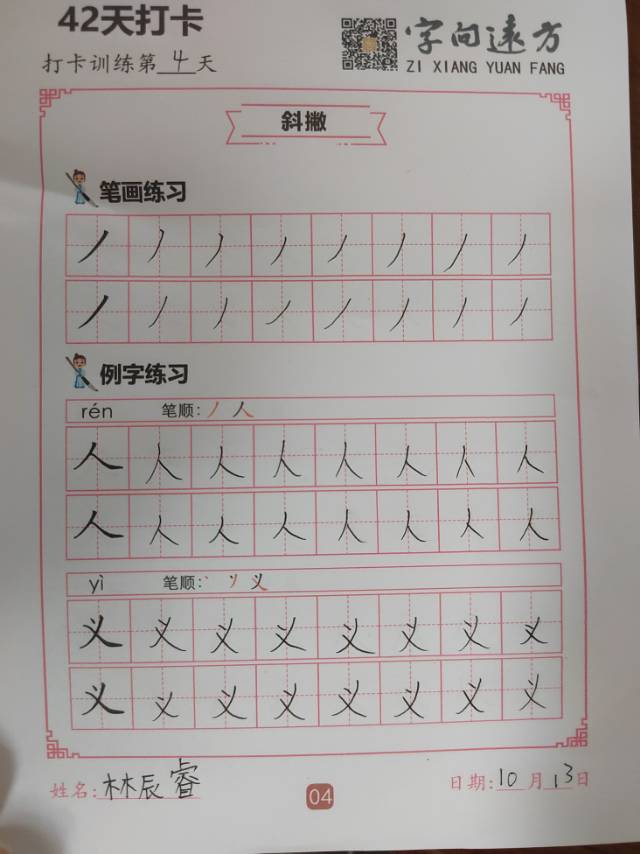 42天打卡
打卡训练第4天
字向远方
ZI XIANG YUAN FANG
斜撇
笔画练习
丿丿丿丿丿丿丿丿
丿丿丿丿丿丿丿丿
例字练习
rén 笔顺: 丿 人
人人人人人人人人
人人人人人人人人
yì 笔顺: 丶 丷 义
义义义义义义义义
义义义义义义义义
姓名: 林辰睿
04
日期: 10月13日